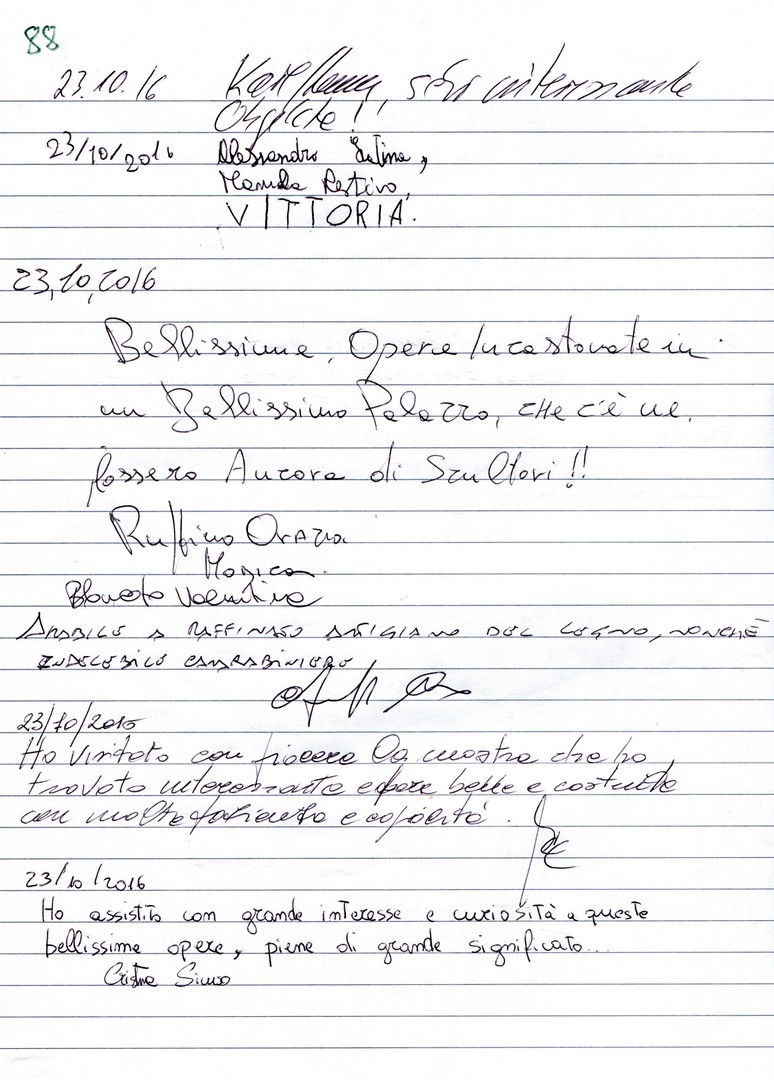 88
23.10.16 Karl sehr interessante
Objekte!!
23/10/2016 Alessandro
Manuela Restivo,
VITTORIA.
23,10,2016
Bellissime, Opere Incastonate in
un Bellissimo Palazzo, CHe c'è ne,
fossero Ancora di Scultori!!
Ruffino Orazio
Monica
Valentina
AMABILE e RAFFINATO ARTIGIANO DEL LEGNO, NONCHÈ
INDELEBILE CARABINIERE
23/10/2016
Ho visitato con piacere la mostra che ho
trovato interessante opere belle e costruite
con molta pazienza e capacità.
23/10/2016
Ho assistito con grande interesse e curiosità a queste
bellissime opere, piene di grande significato...
Cristina